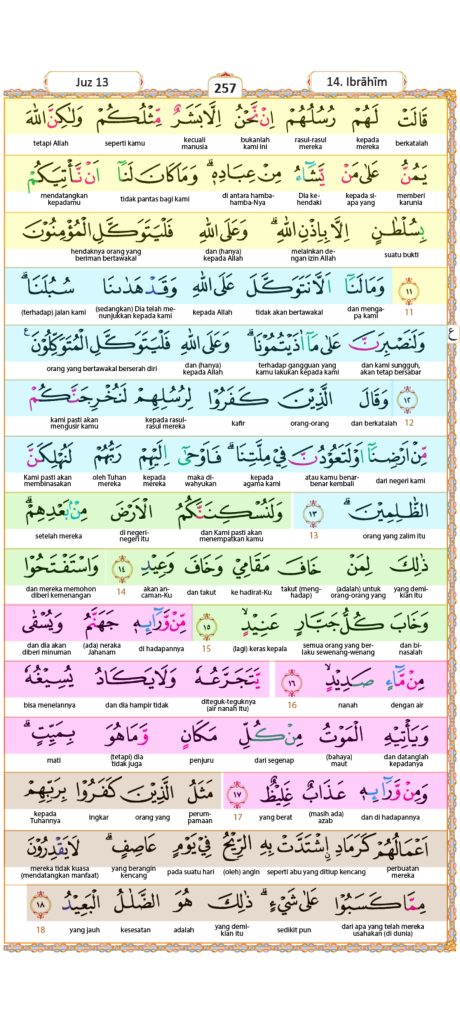 Juz 13
257
14. Ibrāhīm
قَالَتْ لَهُمْ رُسُلُهُمْ اِنْ نَّحْنُ اِلَّا بَشَرٌ مِّثْلُكُمْ وَلٰكِنَّ اللّٰهَ
berkatalah kepada mereka rasul-rasul mereka bukanlah kami ini kecuali manusia seperti kamu tetapi Allah
يَمُنُّ عَلٰى مَنْ يَّشَاۤءُ مِنْ عِبَادِهٖۗ وَمَا كَانَ لَنَآ اَنْ نَّأْتِيَكُمْ
memberi karunia kepada si-apa yang Dia ke-hendaki di antara hamba-hamba-Nya tidak pantas bagi kami mendatangkan kepadamu
بِسُلْطٰنٍ اِلَّا بِاِذْنِ اللّٰهِۗ وَعَلَى اللّٰهِ فَلْيَتَوَكَّلِ الْمُؤْمِنُوْنَ
suatu bukti melainkan de-ngan izin Allah dan (hanya) kepada Allah hendaknya orang yang beriman bertawakal
١١ وَمَا لَنَآ اَلَّا نَتَوَكَّلَ عَلَى اللّٰهِ وَقَدْ هَدٰىنَا سُبُلَنَاۗ
11 dan menga-pa kami tidak akan bertawakal kepada Allah (sedangkan) Dia telah me-nunjukkan kepada kami (terhadap) jalan kami
وَلَنَصْبِرَنَّ عَلٰى مَآ اٰذَيْتُمُوْنَاۗ وَعَلَى اللّٰهِ فَلْيَتَوَكَّلِ الْمُتَوَكِّلُوْنَ ࣖ
ع
dan kami sungguh, akan tetap bersabar terhadap gangguan yang kamu lakukan kepada kami dan (hanya) kepada Allah orang yang bertawakal berserah diri
١٢ وَقَالَ الَّذِيْنَ كَفَرُوْا لِرُسُلِهِمْ لَنُخْرِجَنَّكُمْ
12 dan berkatalah orang-orang kafir kepada rasul-rasul mereka kami pasti akan mengusir kamu
مِّنْ اَرْضِنَآ اَوْ لَتَعُوْدُنَّ فِيْ مِلَّتِنَاۗ فَاَوْحٰٓى اِلَيْهِمْ رَبُّهُمْ لَنُهْلِكَنَّ
dari negeri kami atau kamu benar-benar kembali kepada agama kami maka di-wahyukan kepada mereka oleh Tuhan mereka Kami pasti akan membinasakan
الظّٰلِمِيْنَۗ ١٣ وَلَنُسْكِنَنَّكُمُ الْاَرْضَ مِنْۢ بَعْدِهِمْۗ
orang yang zalim itu 13 dan Kami pasti akan menempatkan kamu di negeri-negeri itu setelah mereka
ذٰلِكَ لِمَنْ خَافَ مَقَامِيْ وَخَافَ وَعِيْدِ ١٤ وَاسْتَفْتَحُوْا
yang demi-kian itu (adalah) untuk orang-orang yang takut (meng-hadap) ke hadirat-Ku dan takut akan an-caman-Ku 14 dan mereka memohon diberi kemenangan
وَخَابَ كُلُّ جَبَّارٍ عَنِيْدٍۙ ١٥ مِّنْ وَّرَاۤىِٕهٖ جَهَنَّمُ وَيُسْقٰى
dan bi-nasalah semua orang yang ber-laku sewenang-wenang (lagi) keras kepala 15 di hadapannya (ada) neraka Jahanam dan dia akan diberi minuman
مِنْ مَّاۤءٍ صَدِيْدٍۙ ١٦ يَّتَجَرَّعُهٗ وَلَا يَكَادُ يُسِيْغُهٗ
dengan air nanah 16 diteguk-teguknya (air nanah itu) dan dia hampir tidak bisa menelannya
وَيَأْتِيْهِ الْمَوْتُ مِنْ كُلِّ مَكَانٍ وَّمَا هُوَ بِمَيِّتٍۗ
dan datanglah kepadanya (bahaya) maut dari segenap penjuru (tetapi) dia tidak juga mati
وَمِنْ وَّرَاۤىِٕهٖ عَذَابٌ غَلِيْظٌ ١٧ مَثَلُ الَّذِيْنَ كَفَرُوْا بِرَبِّهِمْ
dan di hadapannya (masih ada) azab yang berat 17 perum-pamaan orang yang ingkar kepada Tuhannya
اَعْمَالُهُمْ كَرَمَادِ ِۨاشْتَدَّتْ بِهِ الرِّيْحُ فِيْ يَوْمٍ عَاصِفٍۗ لَا يَقْدِرُوْنَ
perbuatan mereka seperti abu yang ditiup kencang (oleh) angin pada suatu hari yang berangin kencang mereka tidak kuasa (mendatangkan manfaat)
مِمَّا كَسَبُوْا عَلٰى شَيْءٍۗ ذٰلِكَ هُوَ الضَّلٰلُ الْبَعِيْدُ ١٨
dari apa yang telah mereka usahakan (di dunia) sedikit pun yang demi-kian itu adalah kesesatan yang jauh 18